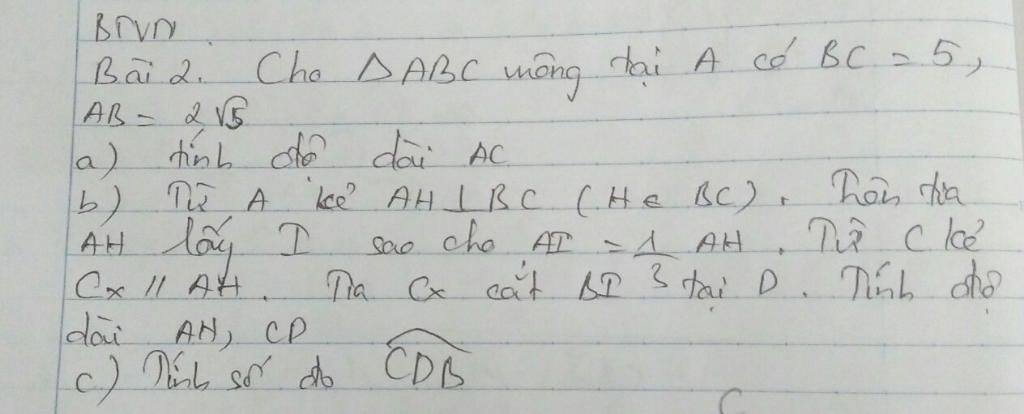 BTVN.
Bài 2. Cho △ABC vuông tại A có BC = 5,
AB = 2√5
a) tính độ dài AC
b) Từ A kẻ AH ⊥ BC (H ∈ BC). Trên tia
AH lấy I sao cho AI = 1/3 AH. Từ C kẻ
Cx // AH. Tia Cx cắt BI tại D. Tính độ
dài AH, CD
c) Tính số đo \widehat{CDB}